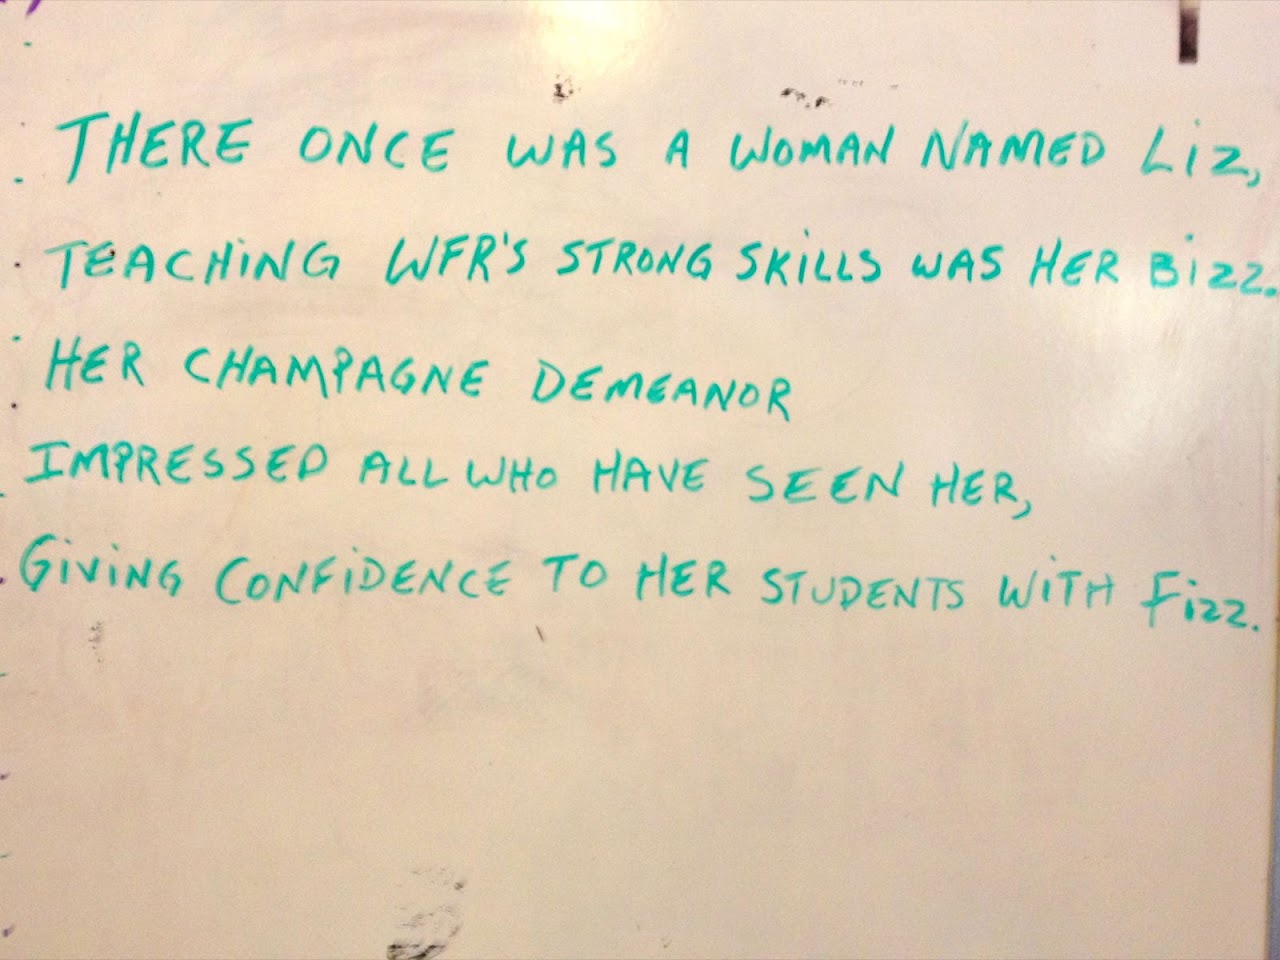 THERE ONCE WAS A WOMAN NAMED LiZ,
TEACHiNG WFR'S STRONG SKiLLS WAS HER BiZZ.
HER CHAMPAGNE DEMEANOR
IMPRESSED ALL WHO HAVE SEEN HER,
GiViNG CONFiDENCE TO HER STUDENTS WiTH FiZZ.